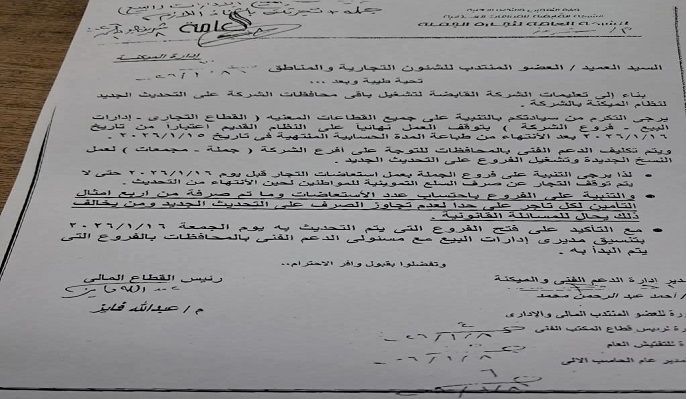 جملة +
العامة
الشركة العامة لتجارة الجملة
إدارة الميكنة
السيد العميد / العضو المنتدب للشئون التجارية والمناطق
تحية طيبة وبعد ...
بناء إلى تعليمات الشركة القابضة لتشغيل باقى محافظات الشركة على التحديث الجديد
لنظام الميكنة بالشركة.
يرجى التكرم من سيادتكم بالتنبية على جميع القطاعات المعنيه ( القطاع التجارى - إدارات
البيع - فروع الشركة ) بتوقف العمل نهائيا على النظام القديم اعتبارا من تاريخ
٢٠٢٦/١/١٦ بعد الانتهاء من طباعة المدة الحسابية المنتهية فى تاريخ ٢٠٢٦/١/١٥
ويتم تكليف الدعم الفنى بالمحافظات للتوجة على افرع الشركة ( جملة - مجمعات ) لعمل
النسخ الجديدة وتشغيل الفروع على التحديث الجديد.
• لذا يرجى التنبية على فروع الجملة بعمل استعاضات التجار قبل يوم ٢٠٢٦/١/١٦ حتى لا
يتم توقف التجار عن صرف السلع التموينية للمواطنين لحين الانتهاء من التحديث.
• والتنبية على الفروع باحتساب عدد الاستعاضات وما تم صرفة من اربع امثال
التأمين لكل تاجر على حدا لعدم تجاوز الصرف على التحديث الجديد ومن يخالف
ذلك يحال للمسائلة القانونية.
• مع التأكيد على فتح الفروع التى يتم التحديث به يوم الجمعة ٢٠٢٦/١/١٦
بتنسيق مديرى إدارات البيع مع مسئولى الدعم الفنى بالمحافظات بالفروع التى
يتم البدأ به.
وتفضلوا بقبول وافر الاحترام...
مدير إدارة الدعم الفنى والميكنة
رئيس القطاع المالى
/ احمد عبد الرحمن محمد
م / عبدالله فايز
رة للعضو المنتدب المالى والادارى
رة لرئيس قطاع المكتب الفنى
ة للتفتيش العام
مدير عام الحاسب الالى